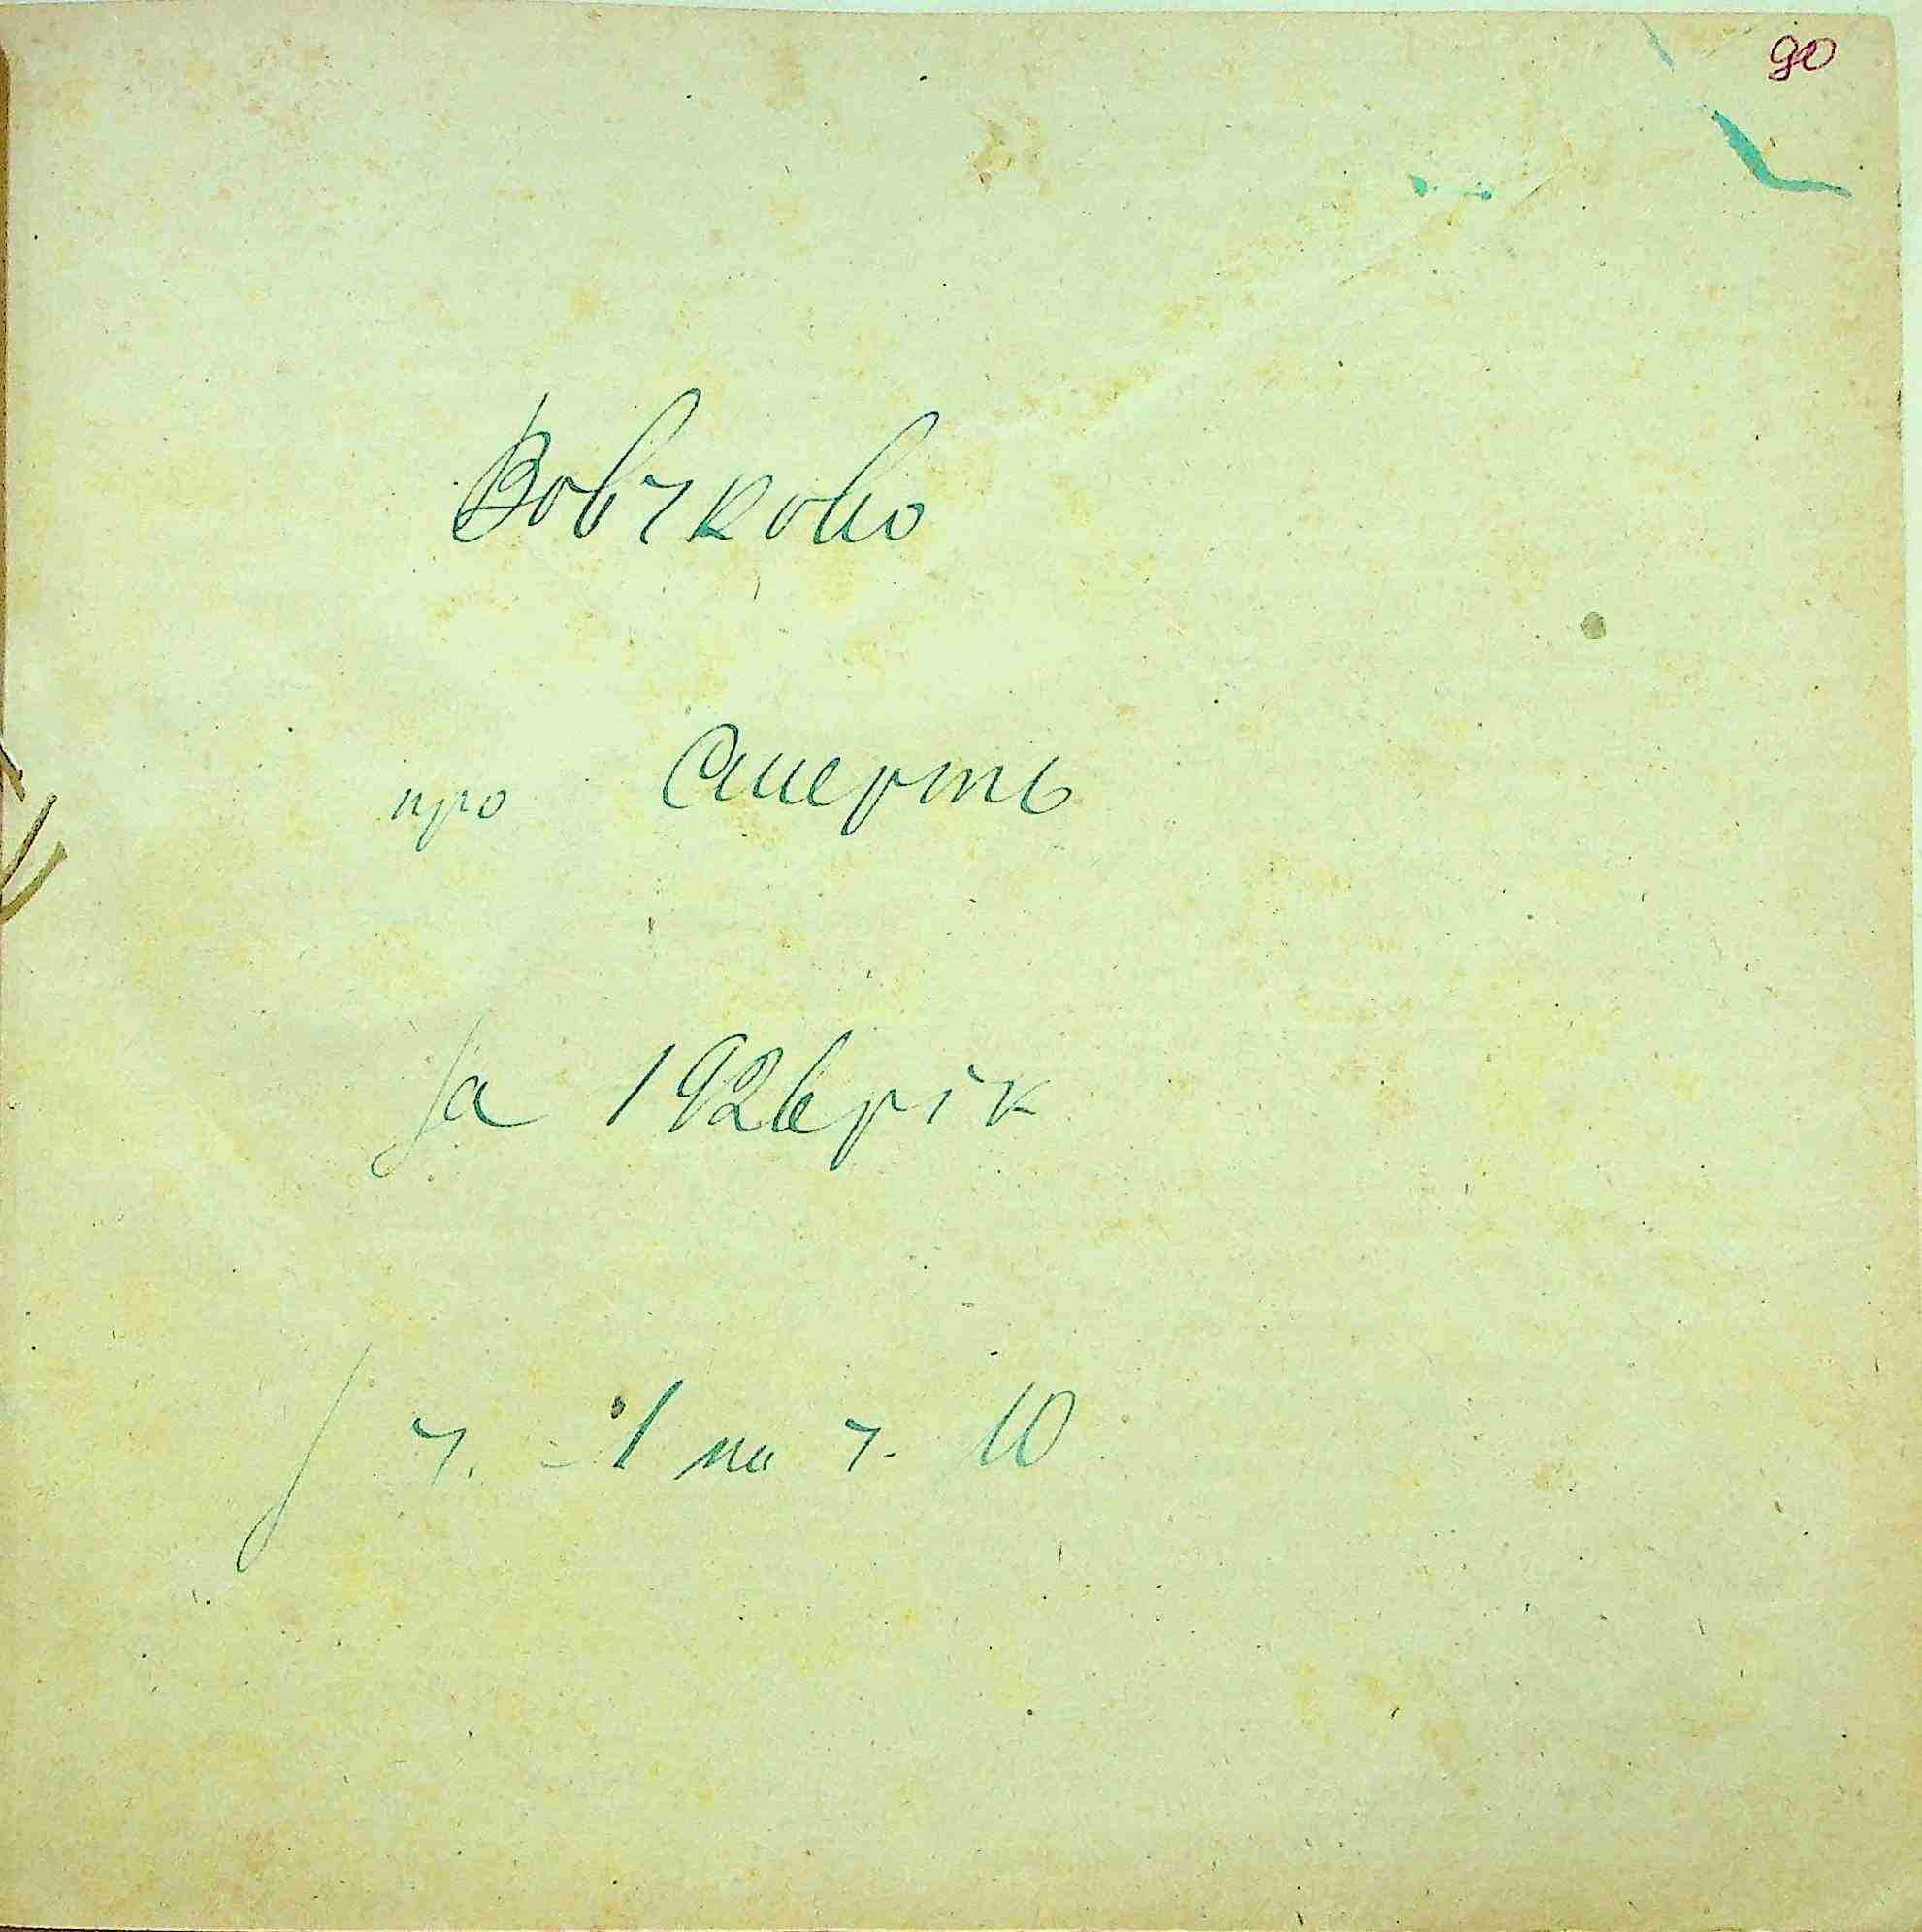 90
Вовчково
про Смерть
За 1926 рік
З ч. - 1 по ч. 10